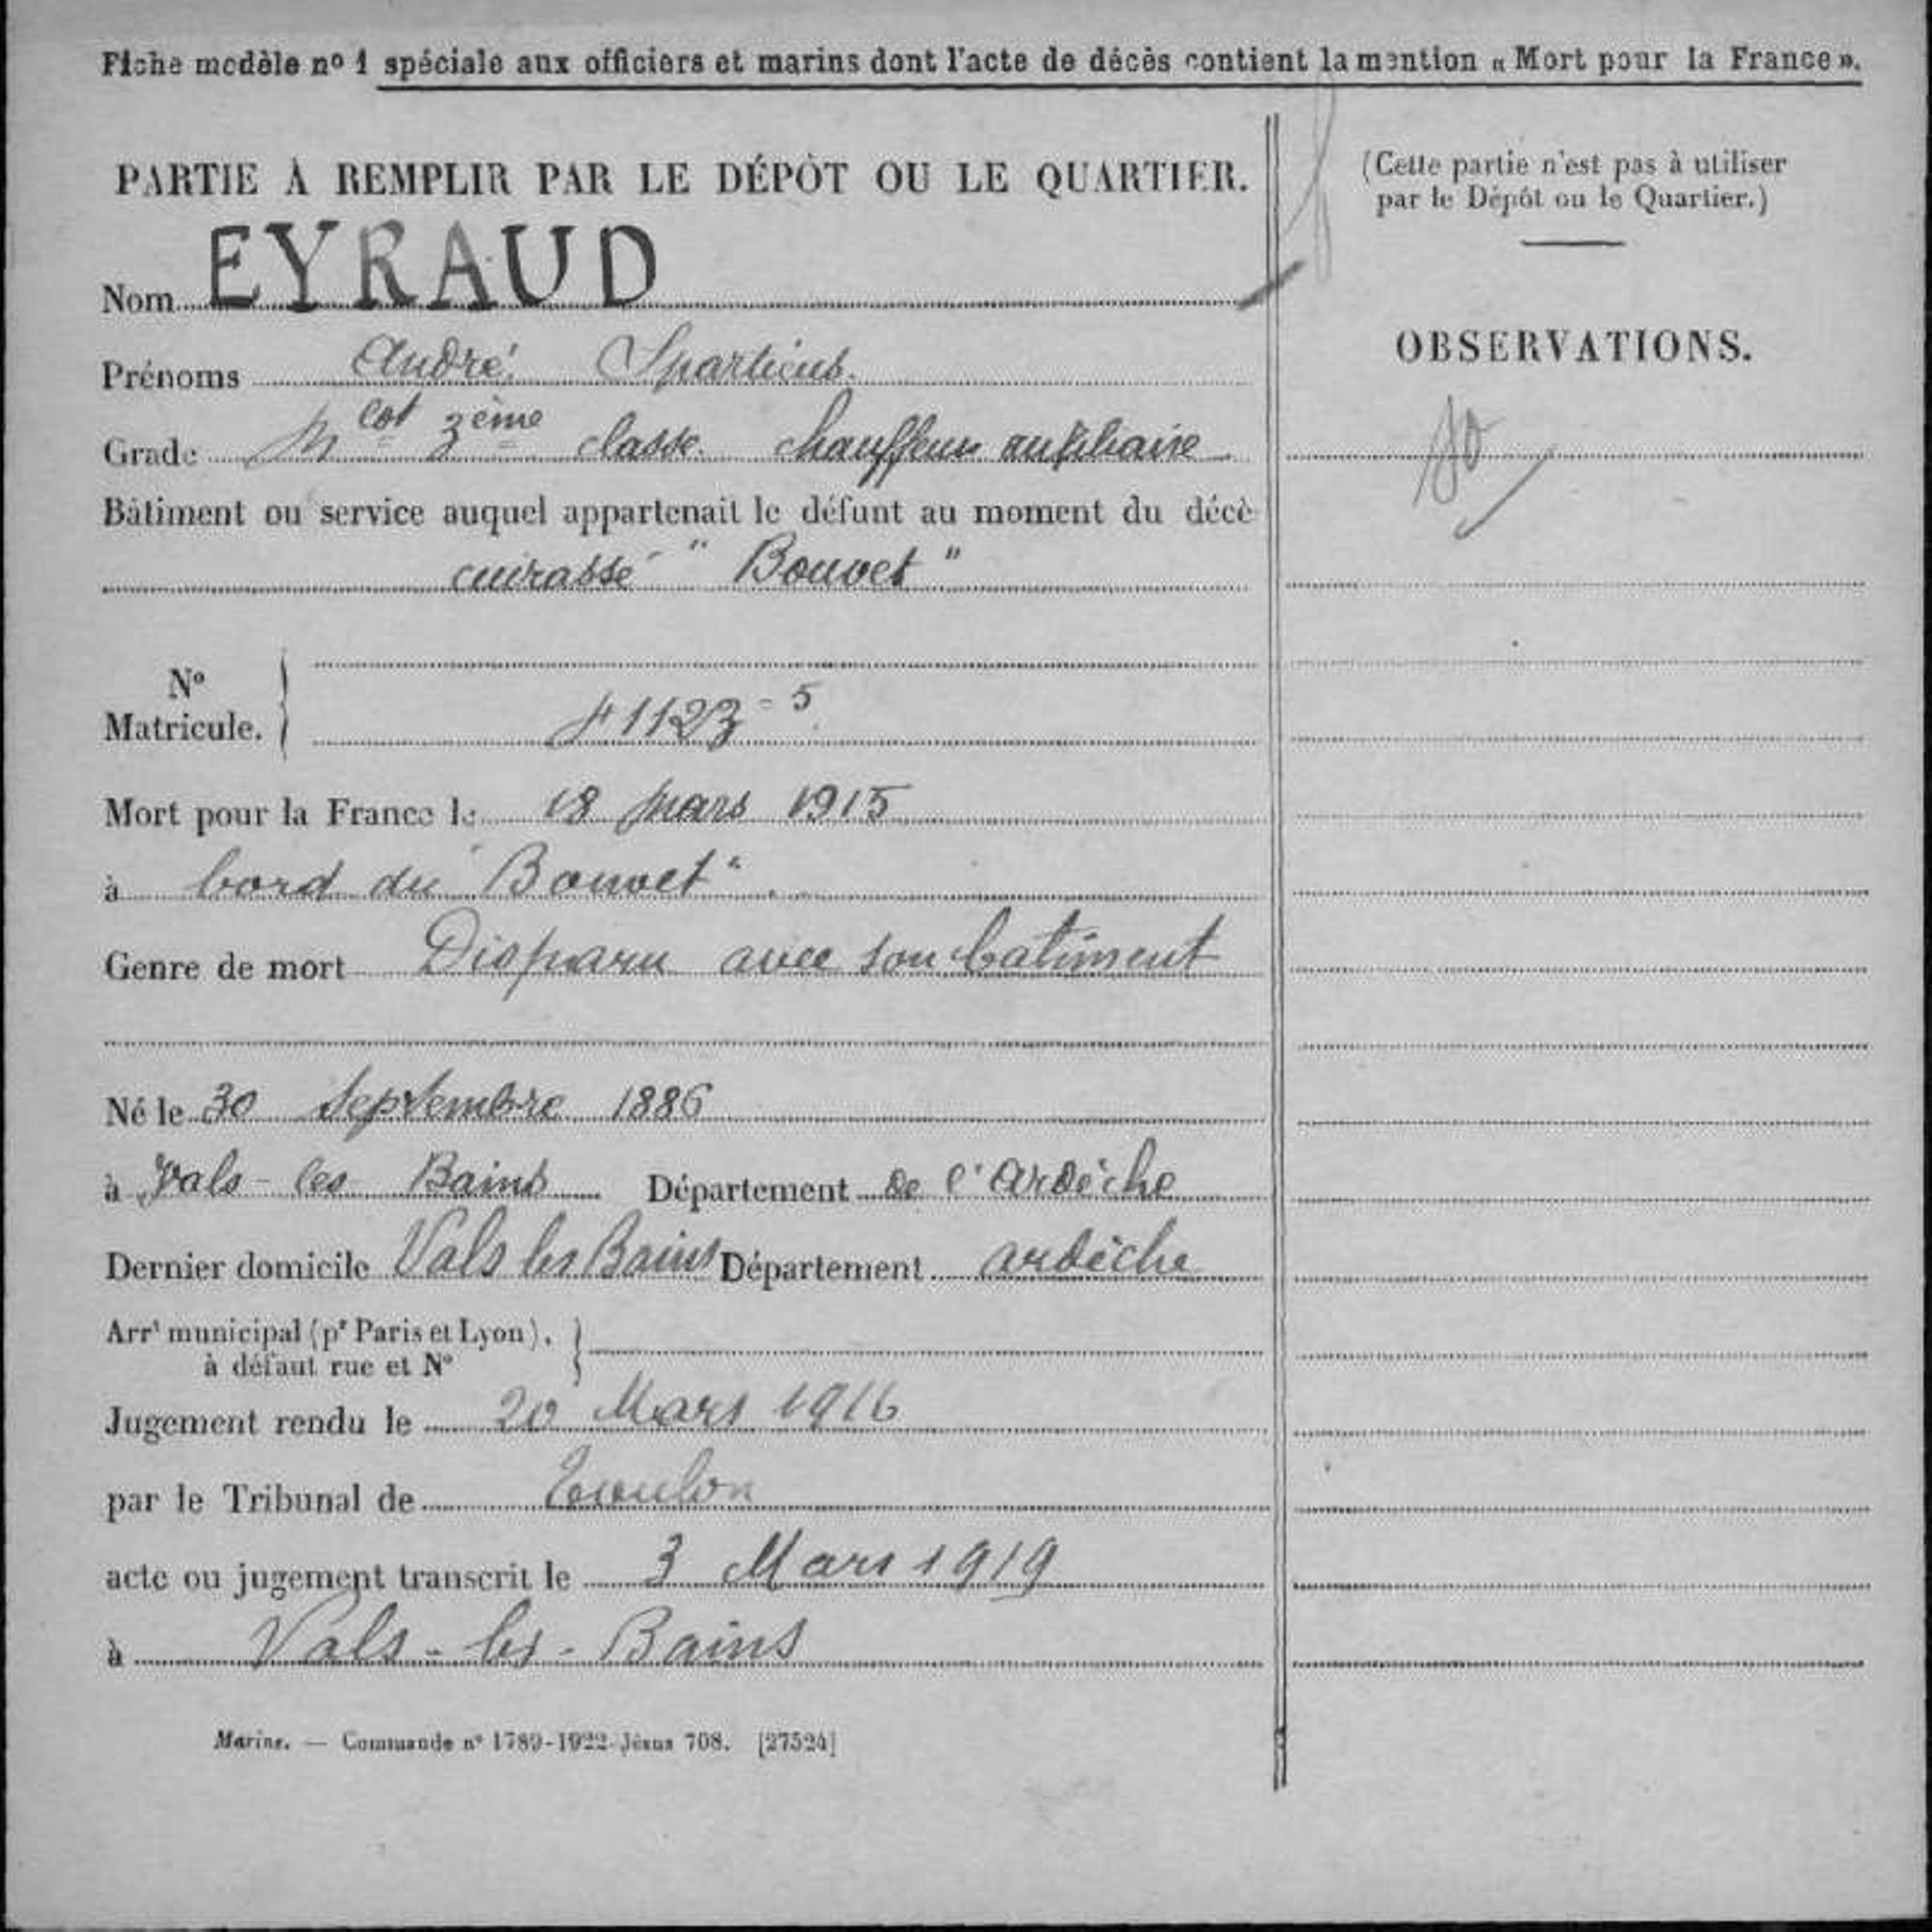 Fiche modèle nº 1 spéciale aux officiers et marins dont l'acte de décès contient la mention « Mort pour la France ».
PARTIE À REMPLIR PAR LE DÉPÔT OU LE QUARTIER.
Nom EYRAUD
Prénoms André Sparticus.
Grade Mcot 3ème classe. chauffeur auxiliaire
Bâtiment ou service auquel appartenait le défunt au moment du décè
cuirassé "Bouvet"
Nº
Matricule. 41123-5
Mort pour la France le 18 Mars 1915
à bord du "Bouvet".
Genre de mort Disparu avec son batiment
Né le 30 Septembre 1886
à Vals-les Bains Département de l'Ardèche
Dernier domicile Vals les Bains Département ardèche
Arrt municipal (pr Paris et Lyon),
à défaut rue et Nº
Jugement rendu le 20 Mars 1916
par le Tribunal de Toulon
acte ou jugement transcrit le 3 Mars 1919
à Vals-les-Bains
Marine. — Commande nº 1789-1922. Jésus 708. [27524]
(Cette partie n'est pas à utiliser
par le Dépôt ou le Quartier.)
OBSERVATIONS.